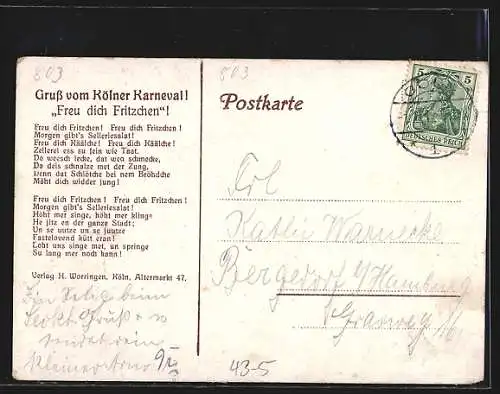 803
803
Gruß vom Kölner Karneval!
„Freu dich Fritzchen“!
Freu dich Fritzchen! Freu dich Fritzchen!
Morgen gibt's Selleriesalat!
Freu dich Käälche! Freu dich Käälche!
Zellerei ess zu fein wie Taat.
Do weesch lecke, dat wea schmecke,
Do deis schnalze met der Zung,
Denn dat Schlötche bei nem Bröhdche
Mäht dich widder jung!
Freu dich Fritzchen! Freu dich Fritzchen!
Morgen gibt's Selleriesalat!
Höht mer singe, höht mer klinge
He jitz en der ganze Stadt;
Un se uutze un se juutze
Fastelovend kütt eran!
Loht uns singe met, un springe
Su lang mer noch kann!
Verlag H. Worringen, Köln, Altermarkt 47.
Postkarte
5 5
DEUTSCHES REICH
Frl
Kathi Warnecke
Bergedorf b/Hamburg
Grasweg
43-5